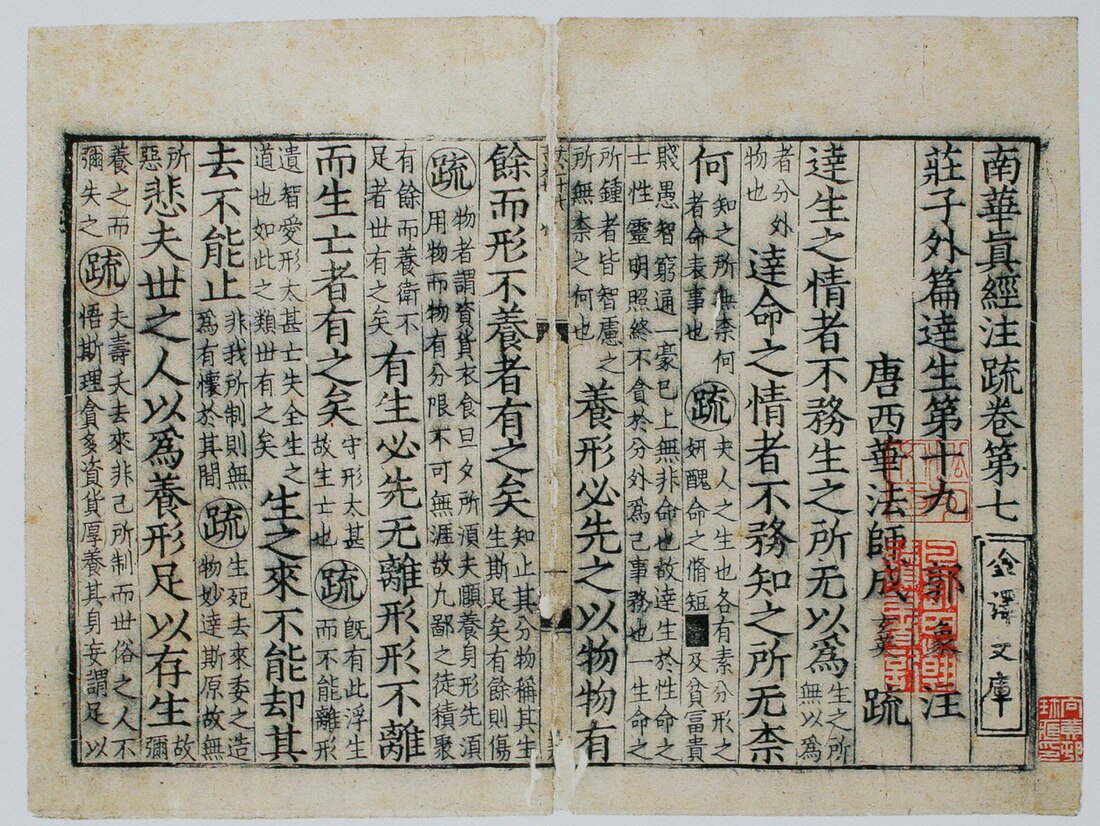 南華真經注疏卷第七
金澤文庫
莊子外篇達生第十九 郭象注
唐西華法師成玄英疏
達生之情者不務生之所无以爲 生之所無以爲
者分外物也 達命之情者不務知之所无柰
何 知之所無柰何者命表事也 疏 夫人之生也各有素分形之妍醜命之脩短■及貧富貴
賤愚智窮通一豪已上無非命也故達生於性命之士性靈明照終不貪於分外爲己事務也一生命之
所鍾者皆智慮之所無柰之何也 養形必先之以物物有
餘而形不養者有之矣 知止其分物稱其生生斯足矣有餘則傷
疏 物者謂資貨衣食旦夕所須夫頤養身形先須用物而物有分限不可無涯故九鄙之徒積聚
有餘而養衛不足者世有之矣 有生必先无離形形不離
而生亡者有之矣 守形太甚故生亡也 疏 既有此浮生而不能離形
遺智愛形太甚亡失全生之道也如此之類世有之矣 生之來不能却其
去不能止 非我所制則無爲有懷於其間 疏 生死去來委之造物妙達斯原故無
所惡 悲夫世之人以爲養形足以存生 故彌
養之而彌失之 疏 夫壽夭去來非己所制而世俗之人不悟斯理貪多資貨厚養其身妄謂足以